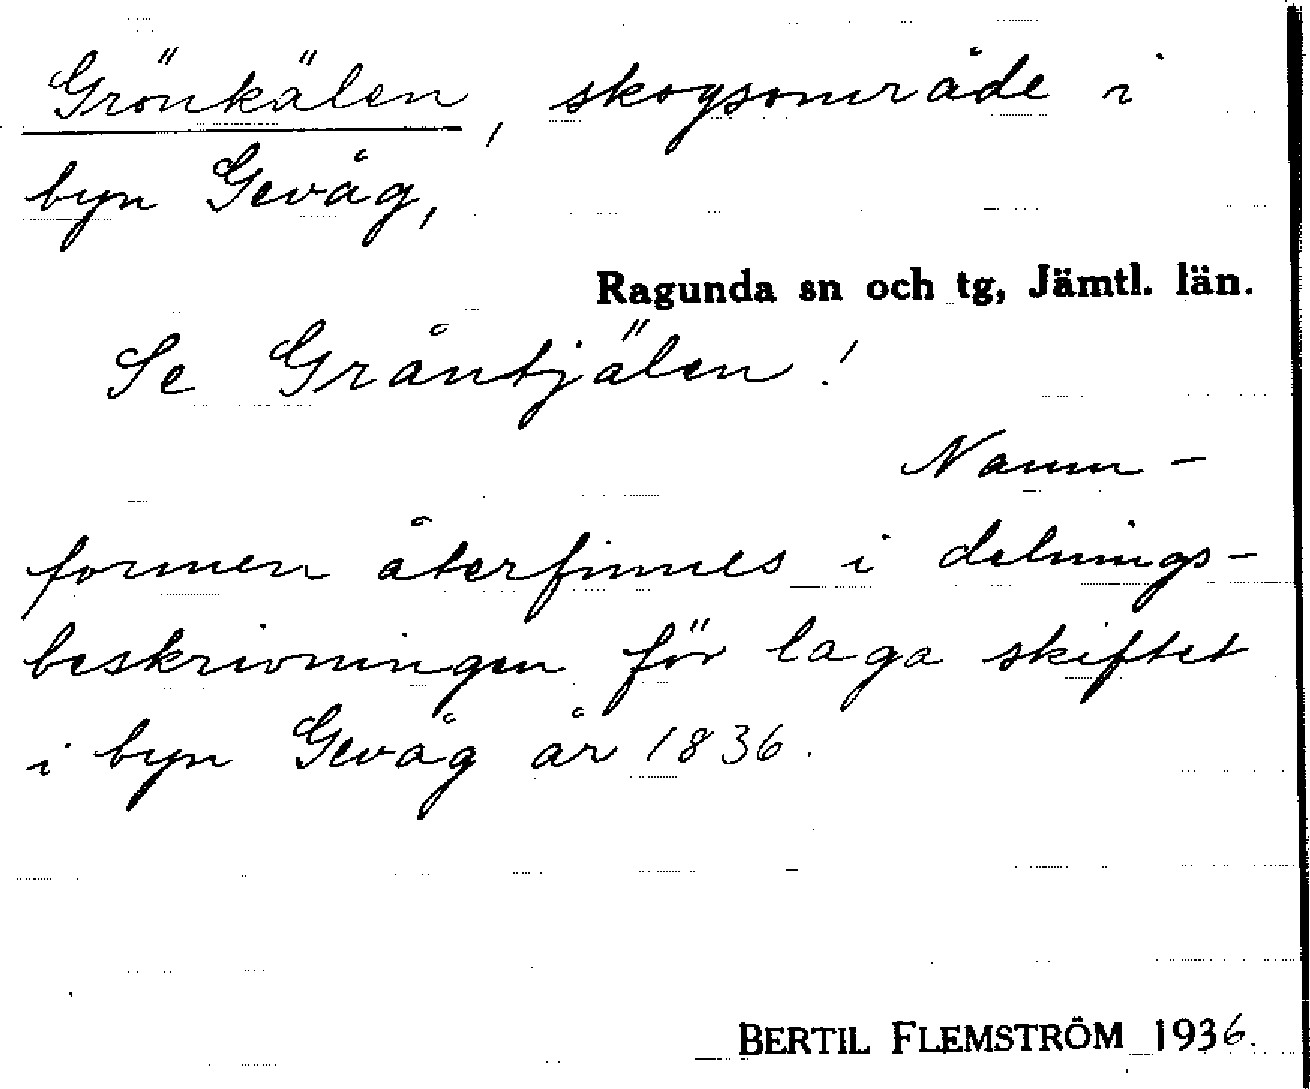 Grönkälen, skogsområde i
byn Gevåg,
Ragunda sn och tg, Jämtl. län.
Se Gråntjälen!
Namn-
formen återfinnes i delnings-
beskrivningen för laga skiftet
i byn Gevåg år 1836.
BERTIL FLEMSTRÖM 1936.